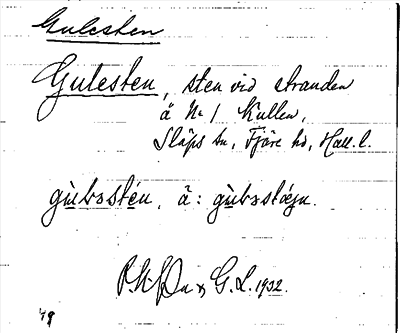 Gulesten
Gulesten, sten vid stranden
å No 1 Kullen,
Släps sn, Fjäre hd, Hall. l.
gùləstén, ä: gùləstǽgn.
G. L. 1932.
49